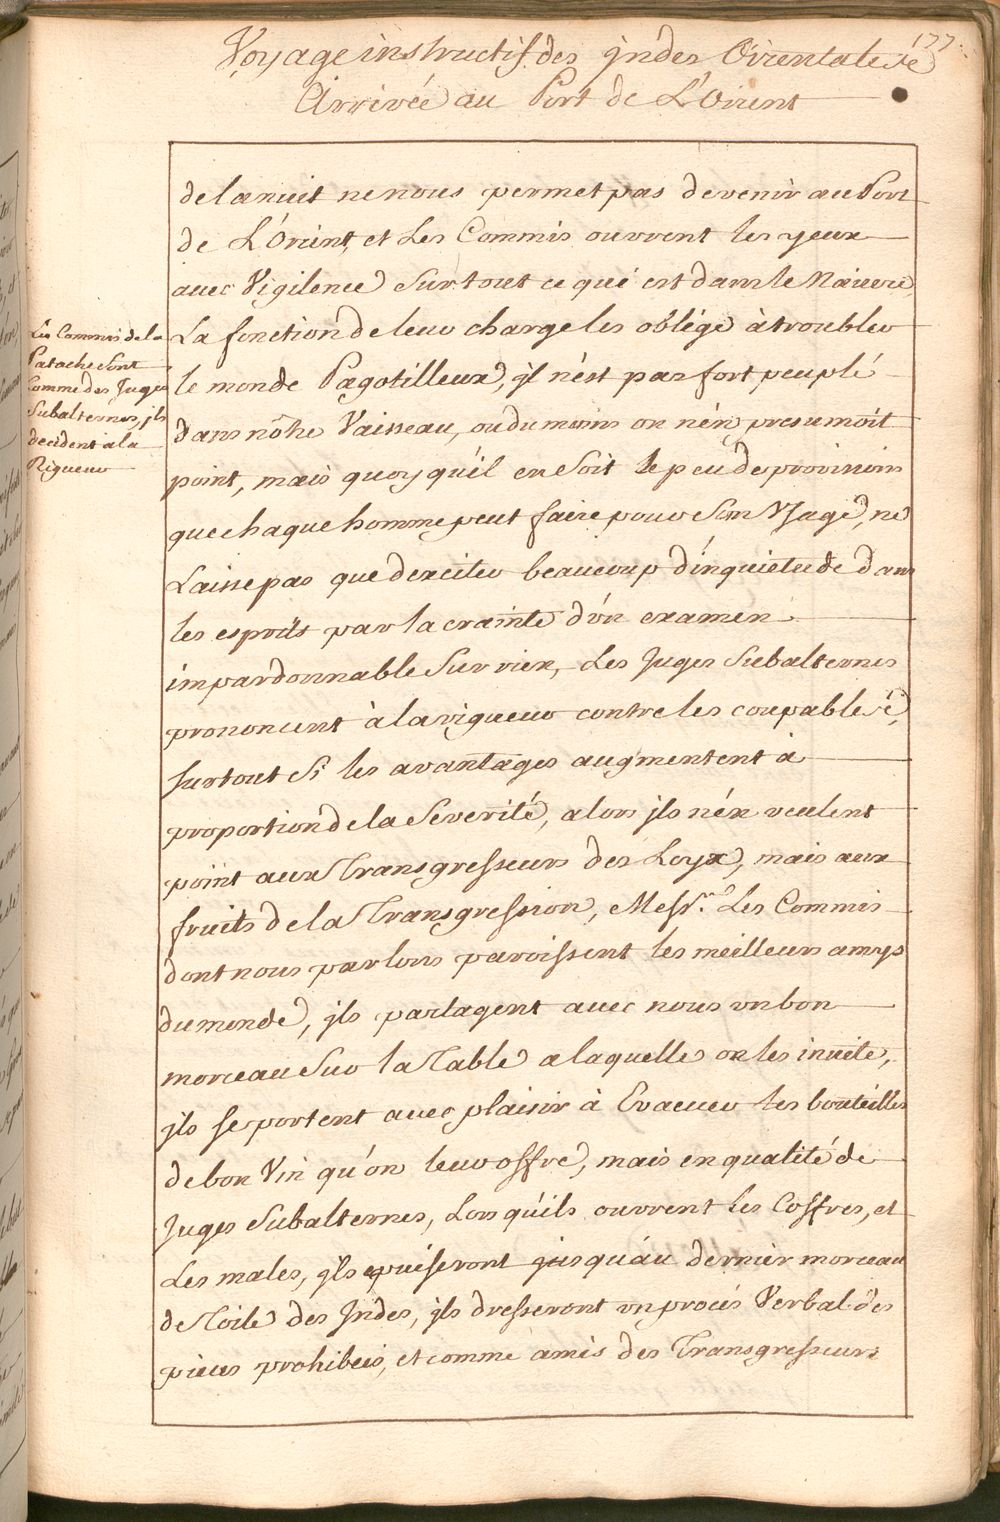 177.
Voyage instructif des jndes Orientales
Arrivée au Port de L'Orient
de la nuit ne nous permet pas de venir au Port
de L'Orient, et Les Commis ouvrent les yeux
avec Vigilence Sur tout ce qui est dans le Navire,
La fonction de leur charge les oblige à troubler
le monde Pagotilleux, jl n'est pas fort peuplé
dans nôtre Vaisseau, ou du moins on n'én presumoit
point, mais quoy qu'il en Soit le peu de provisions
que chaque homme peut faire pour Son Usage, ne
Laisse pas que d'exciter beaucoup d'inquietude dans
les esprits par la crainte d'ún examen
impardonnable Sur rien, Les Juges Subalternes
prononcent à la rigueur contre les coupables,
surtout Si les avantages augmentent à
proportion de la Severité, alors jls n'én veulent
point aux Transgresseurs des Loyx, mais aux
fruits de la Transgression, Mess.rs Les Commis
dont nous parlons paroissent les meilleurs amys
du monde, jls partagent avec nous un bon
morceau Sur la Table a laquelle on les invite,
jls se portent avec plaisir à Evacuer les bouteilles
de bon Vin qu'on leur offre, mais en qualité de
Juges Subalternes, Lors qu'ils ouvrent les Coffres, et
Les males, jls epuiseront jusqu'áu dernier morceau
de Toile des Jndes, jls dresseront un procés Verbal des
pieces prohibeés, et comme amis des Transgresseurs
Les Commis de la
Patache Sont
Comme des Juges
Subalternes, jls
decident a la
Rigueur